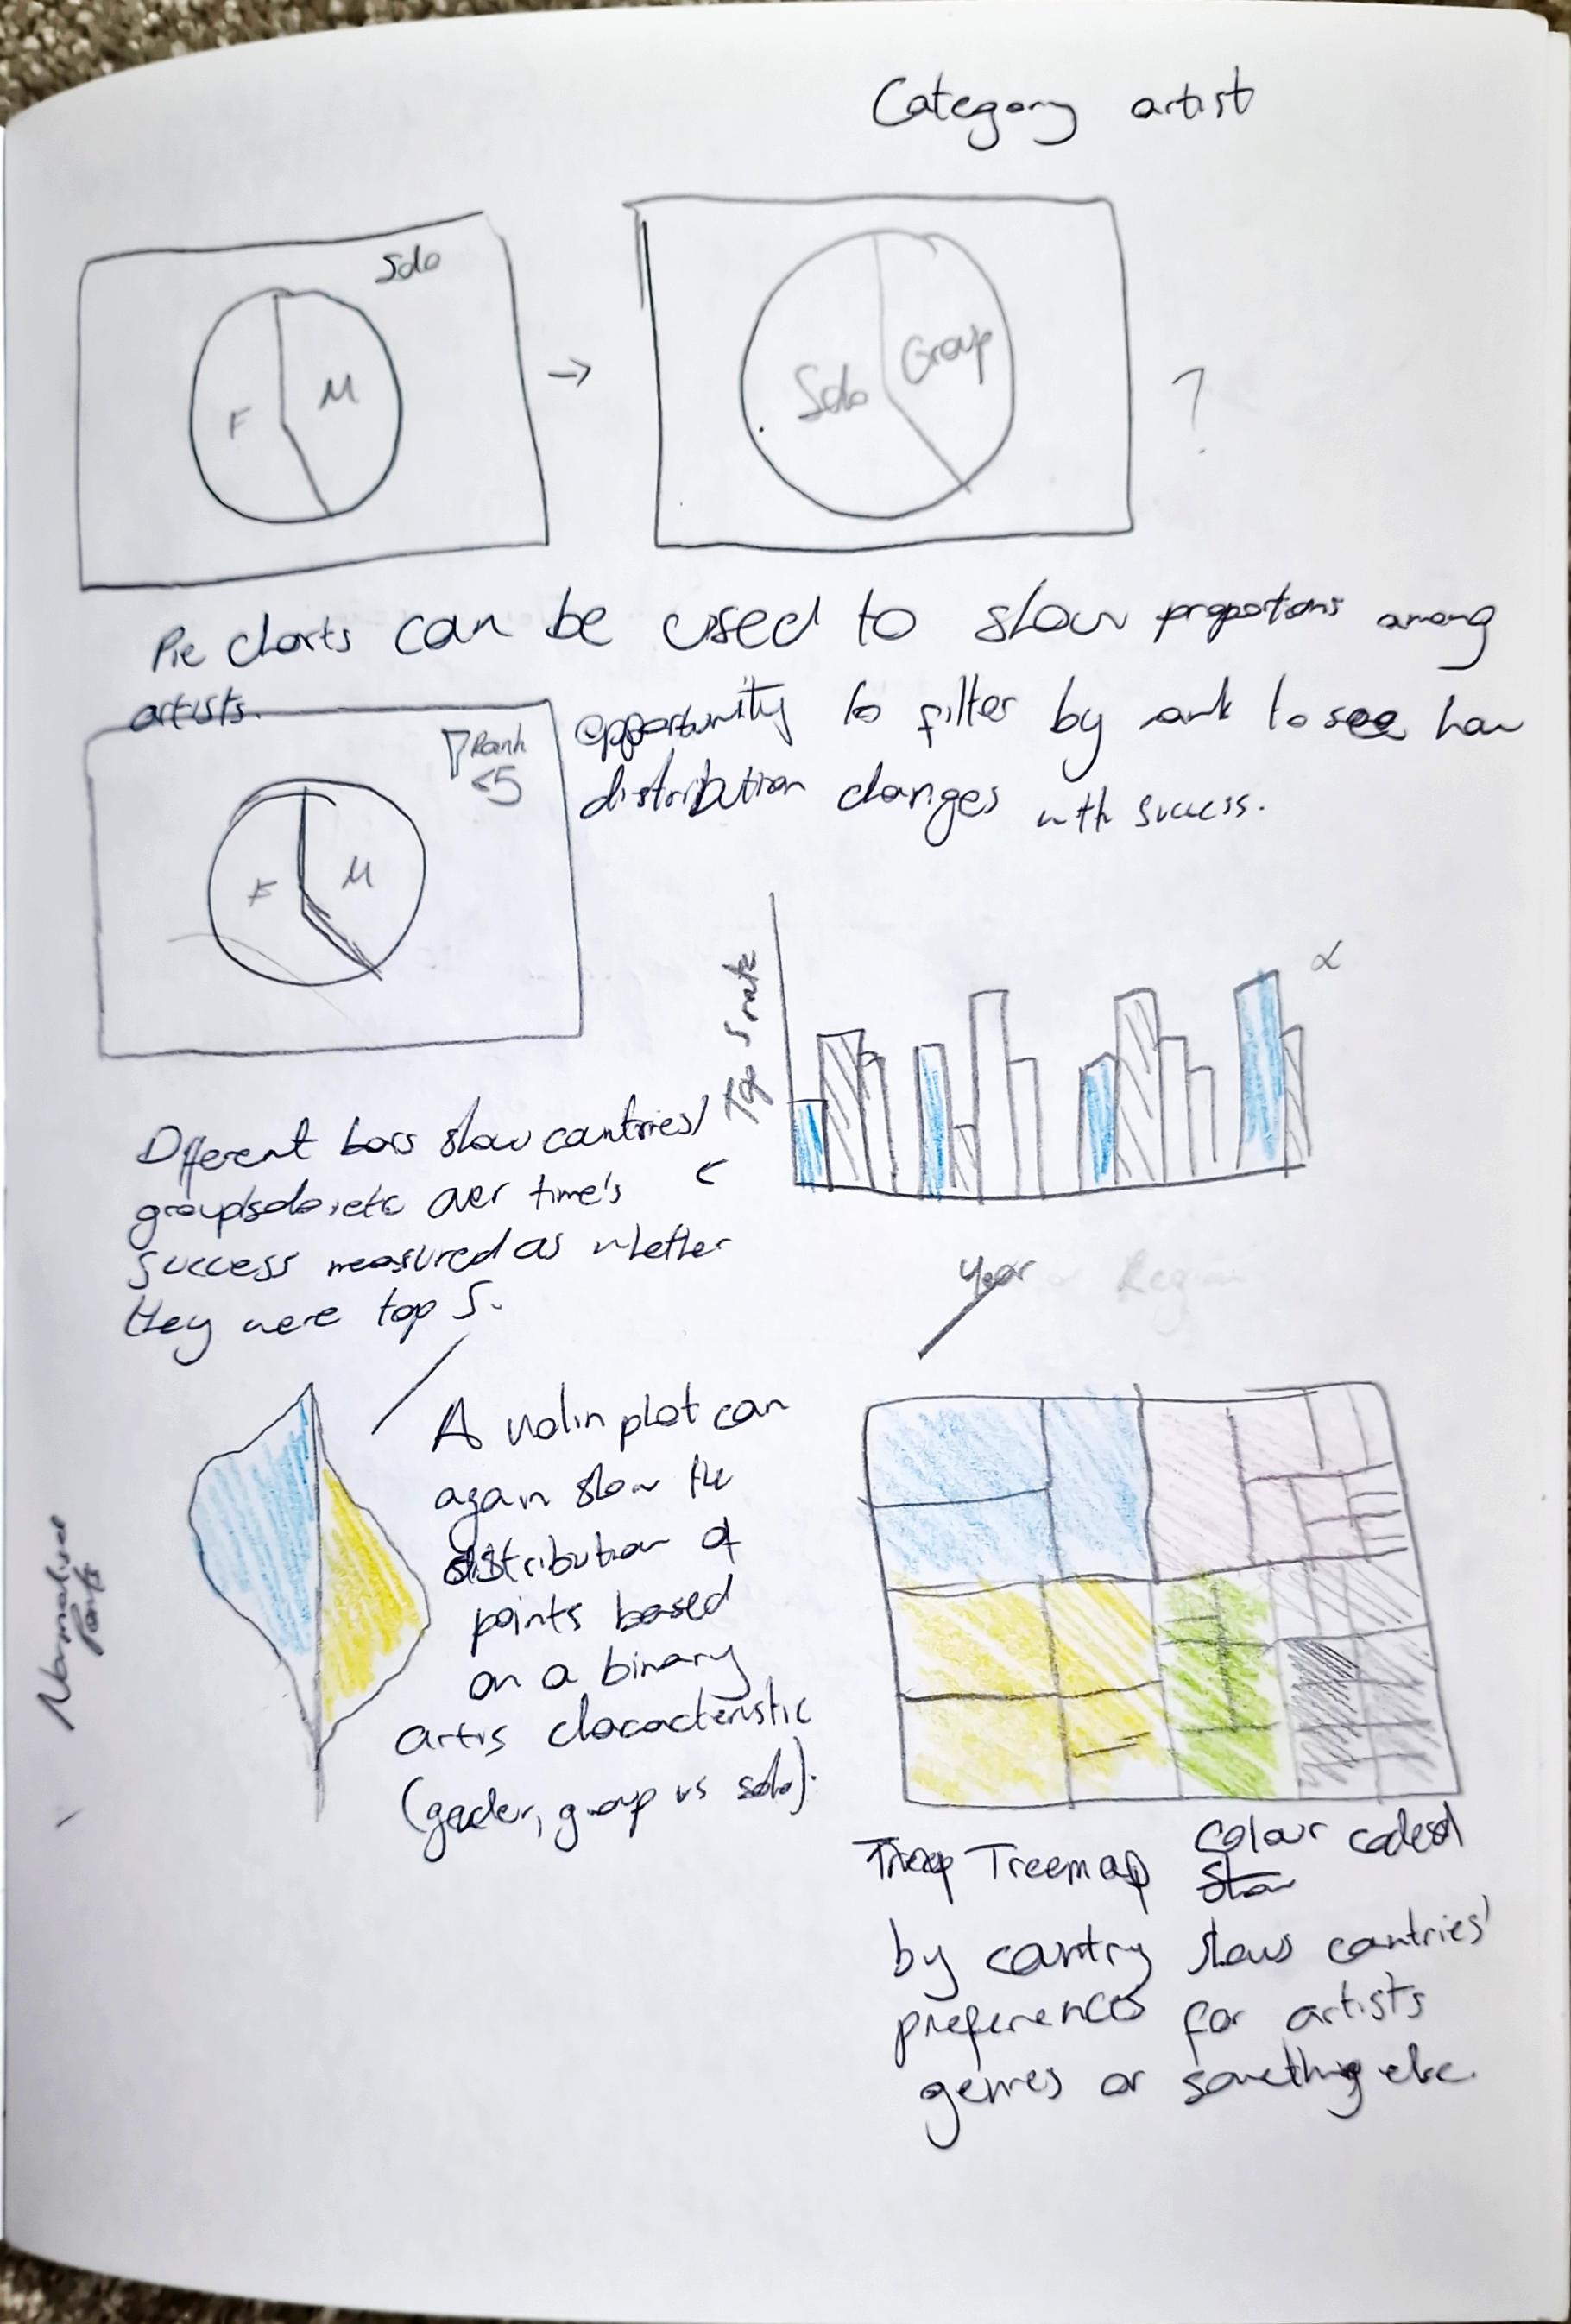 Category artist
Solo
F
M
→
Solo
Group
?
Pie charts can be used to show proportions among
artists.
opportunity to filter by rank to see how
distribution changes with success.
Rank
<5
F
M
Top 5 rate
Different bars show countries/
group/solo, etc over time's
success measured as whether
they were top 5.
Year or Region
A violin plot can
again show the
distribution of
points based
on a binary
artis characteristic
(gender, group vs solo).
Normalised
Points
Treemap colour coded
by country shows countries'
preferences for artists
genres or something else.